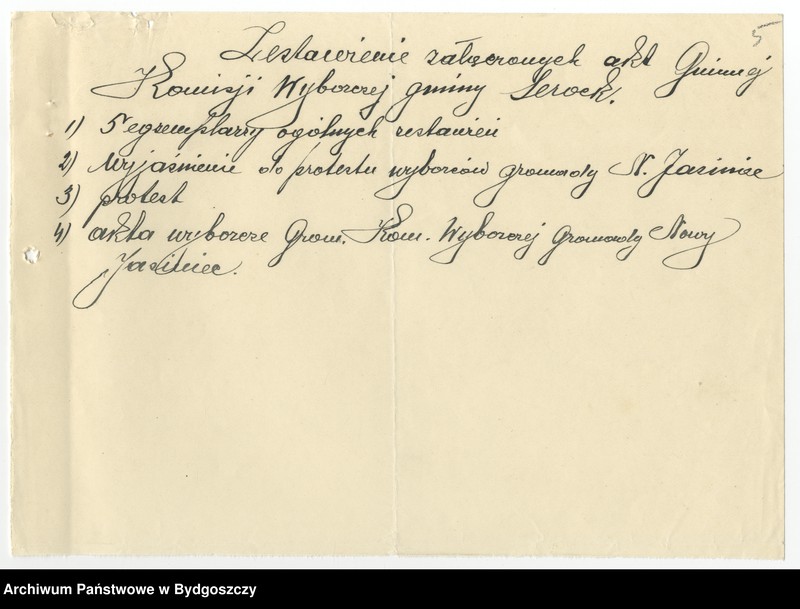 5
Zestawienie załączonych akt Gminnej
Komisji Wyborczej gminy Serock.
1) 5 egzemplarzy ogólnych zestawień
2) Wyjaśnienie do protestu wyborców gromady N. Jasiniec
3) protest
4) akta wyborcze Grom. Kom. Wyborczej Gromady Nowy
Jasiniec.
Archiwum Państwowe w Bydgoszczy